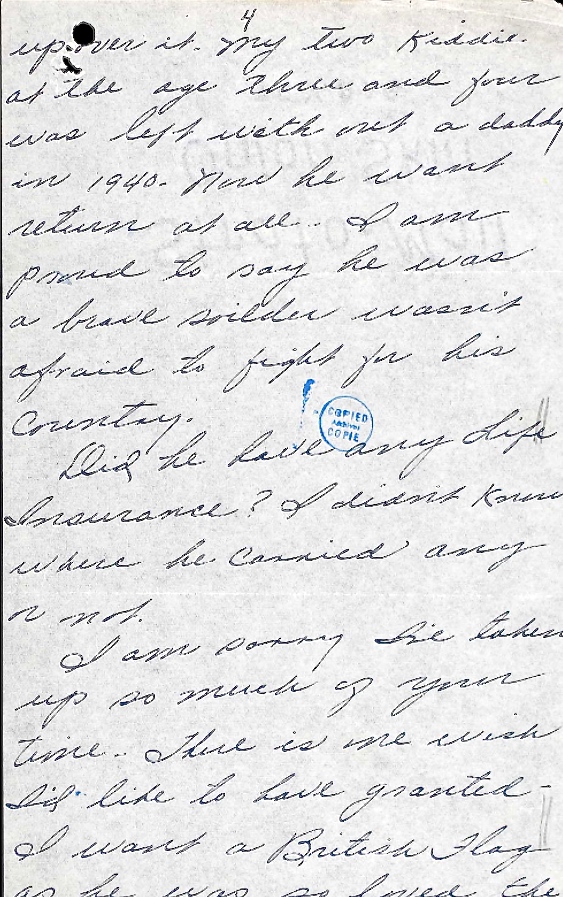 4
up over it. My two Kiddie.
at the age three and four
was left with out a daddy
in 1940. Now he want
return at all. I am
proud to say he was
a brave soilder wasn't
afraid to fight for his
Country.
COPIED
Archives
COPIE
Did he have any Life
Insurance? I didn't Know
where he carried any
or not.
I am sorry I've taken
up so much of your
time. There is one wish
I'd like to have granted -
I want a British Flag
as he was so loved the